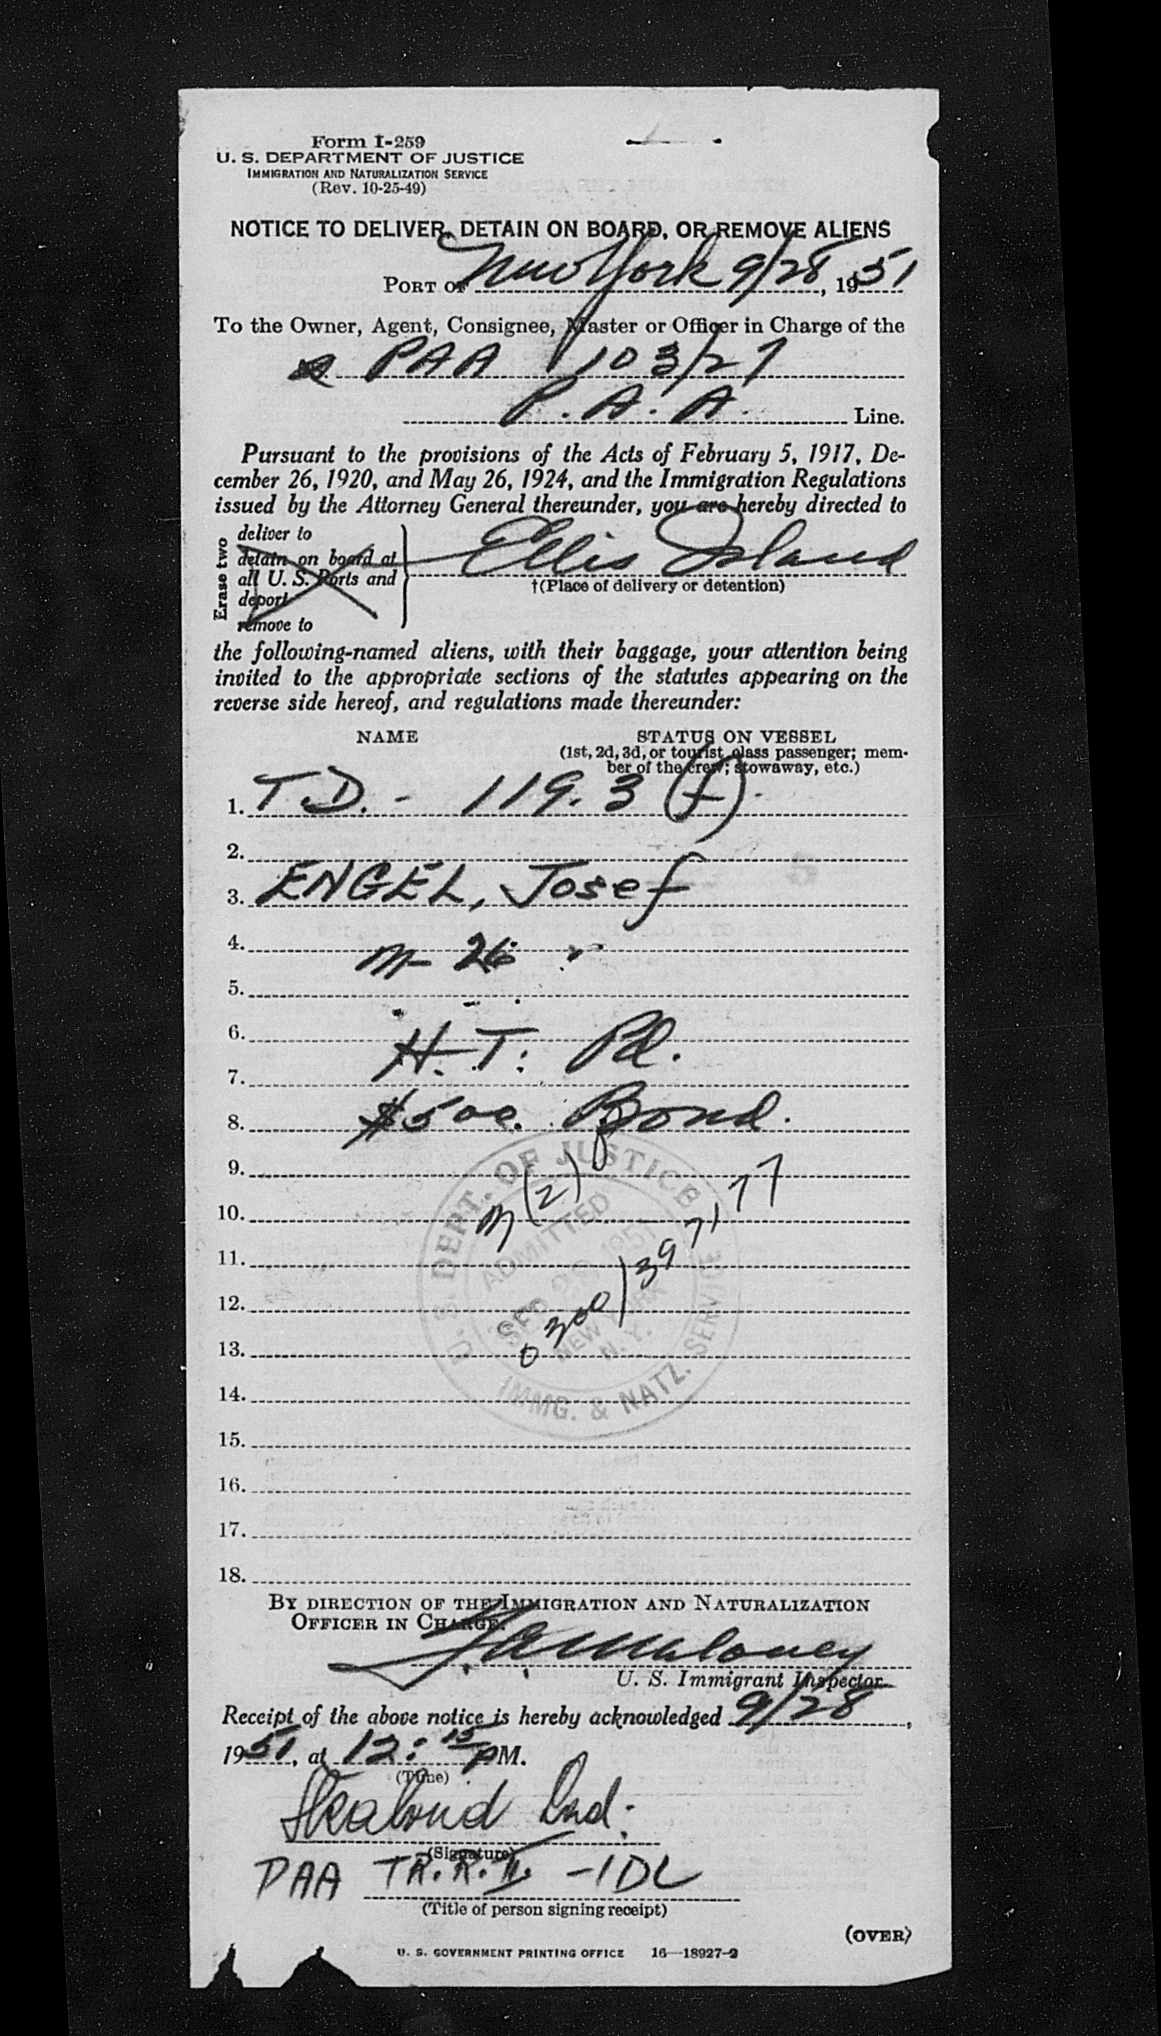 Form I-259
U. S. DEPARTMENT OF JUSTICE
IMMIGRATION AND NATURALIZATION SERVICE
(Rev. 10-25-49)
NOTICE TO DELIVER, DETAIN ON BOARD, OR REMOVE ALIENS
PORT OF New York 9/28, 1951
To the Owner, Agent, Consignee, Master or Officer in Charge of the
PAA 103/27
P. A. A. Line.
Pursuant to the provisions of the Acts of February 5, 1917, De-
cember 26, 1920, and May 26, 1924, and the Immigration Regulations
issued by the Attorney General thereunder, you are hereby directed to
Erase two
deliver to
detain on board at
all U. S. Ports and
deport
remove to
Ellis Island
†(Place of delivery or detention)
the following-named aliens, with their baggage, your attention being
invited to the appropriate sections of the statutes appearing on the
reverse side hereof, and regulations made thereunder:
NAME
STATUS ON VESSEL
(1st, 2d, 3d, or tourist class passenger; mem-
ber of the crew; stowaway, etc.)
1. T.D. - 119.3 (f).
2.
3. ENGEL, Josef
4. m- 26
5.
6.
H.T. Pd.
7.
8. $500. Bond.
9.
m (2)
10.
11.
12.
0300/3971/77
13.
14.
15.
16.
17.
18.
U. S. DEPT. OF JUSTICE
ADMITTED
SEP 28 1951
NEW YORK
N. Y.
IMMG. & NATZ. SERVICE
BY DIRECTION OF THE IMMIGRATION AND NATURALIZATION
OFFICER IN CHARGE.
Maloney
U. S. Immigrant Inspector.
Receipt of the above notice is hereby acknowledged 9/28,
1951, at 12:15 PM.
(Time)
(Signature)
PAA TR. R. II - IDL
(Title of person signing receipt)
(OVER)
U. S. GOVERNMENT PRINTING OFFICE 16—18927-2